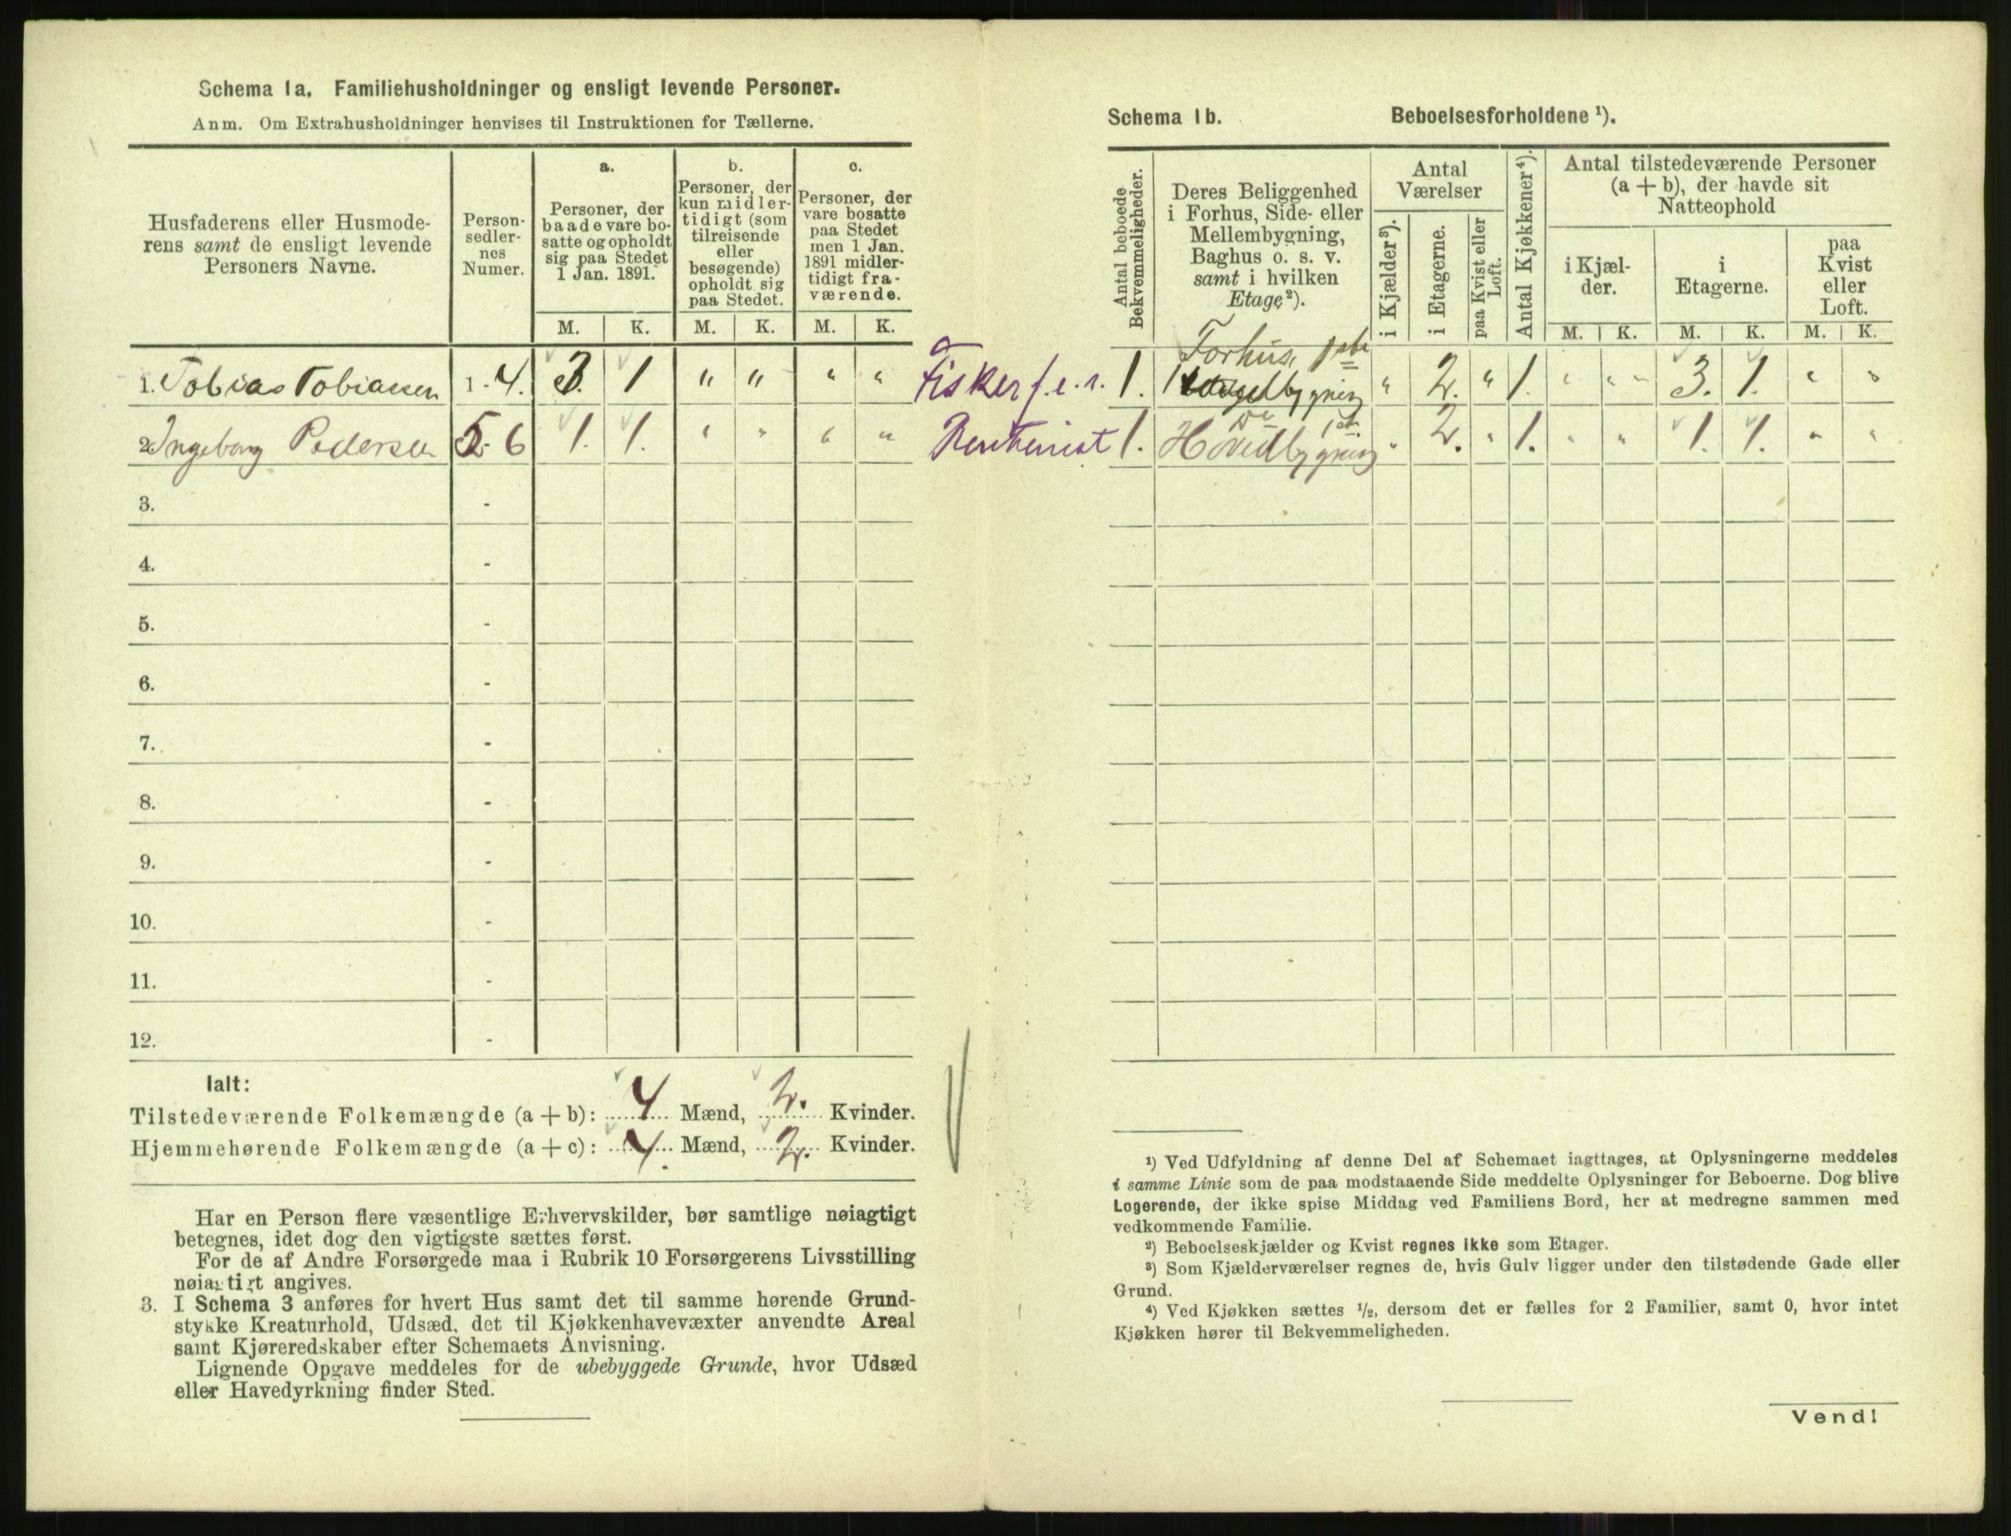 Schema 1a. Familiehusholdninger og ensligt levende Personer.
Anm. Om Extrahusholdninger henvises til Instruktionen for Tællerne.
Husfaderens eller Husmode-
rens samt de ensligt levende
Personers Navne.
Person-
sedler-
nes
Numer.
a.
Personer, der
baade vare bo-
satte og opholdt
sig paa Stedet
1 Jan. 1891.
b.
Personer, der
kun midler-
tidigt (som
tilreisende
eller
besøgende)
opholdt sig
paa Stedet.
c.
Personer, der
vare bosatte
paa Stedet
men 1 Jan.
1891 midler-
tidigt fra-
værende.
M. K. M. K. M. K.
1. Tobias Tobiassen 1-4. 3. 1 " " " " Fisker f. e. r.
2. Ingeborg Pedersen 5-6 1. 1. " " " " Rentenist
3. -
4. -
5. -
6. -
7. -
8. -
9. -
10. -
11. -
12. -
Ialt:
Tilstedeværende Folkemængde (a + b): 4 Mænd, 2. Kvinder.
Hjemmehørende Folkemængde (a + c): 4. Mænd, 2. Kvinder.
Har en Person flere væsentlige Erhvervskilder, bør samtlige nøiagtigt
betegnes, idet dog den vigtigste sættes først.
For de af Andre Forsørgede maa i Rubrik 10 Forsørgerens Livsstilling
nøiagtigt angives.
3. I Schema 3 anføres for hvert Hus samt det til samme hørende Grund-
stykke Kreaturhold, Udsæd, det til Kjøkkenhavevæxter anvendte Areal
samt Kjøreredskaber efter Schemaets Anvisning.
Lignende Opgave meddeles for de ubebyggede Grunde, hvor Udsæd
eller Havedyrkning finder Sted.
Schema 1b. Beboelsesforholdene ¹).
Antal beboede
Bekvemmeligheder.
Deres Beliggenhed
i Forhus, Side- eller
Mellembygning,
Baghus o. s. v.
samt i hvilken
Etage²).
Antal
Værelser
i Kjælder³).
i Etagerne.
paa Kvist eller
Loft.
Antal Kjøkkener⁴).
Antal tilstedeværende Personer
(a + b), der havde sit
Natteophold
i Kjæl-
der.
i
Etagerne.
paa
Kvist
eller
Loft.
M. K. M. K. M. K.
1. Forhus, 1 " 2. " 1. " " 3. 1. " "
1. Hovedbygning " 2. " 1. " " 1. 1. " "
¹) Ved Udfyldning af denne Del af Schemaet iagttages, at Oplysningerne meddeles
i samme Linie som de paa modstaaende Side meddelte Oplysninger for Beboerne. Dog blive
Logerende, der ikke spise Middag ved Familiens Bord, her at medregne sammen med
vedkommende Familie.
²) Beboelseskjælder og Kvist regnes ikke som Etager.
³) Som Kjælderværelser regnes de, hvis Gulv ligger under den tilstødende Gade eller
Grund.
⁴) Ved Kjøkken sættes ½, dersom det er fælles for 2 Familier, samt 0, hvor intet
Kjøkken hører til Bekvemmeligheden.
Vend!